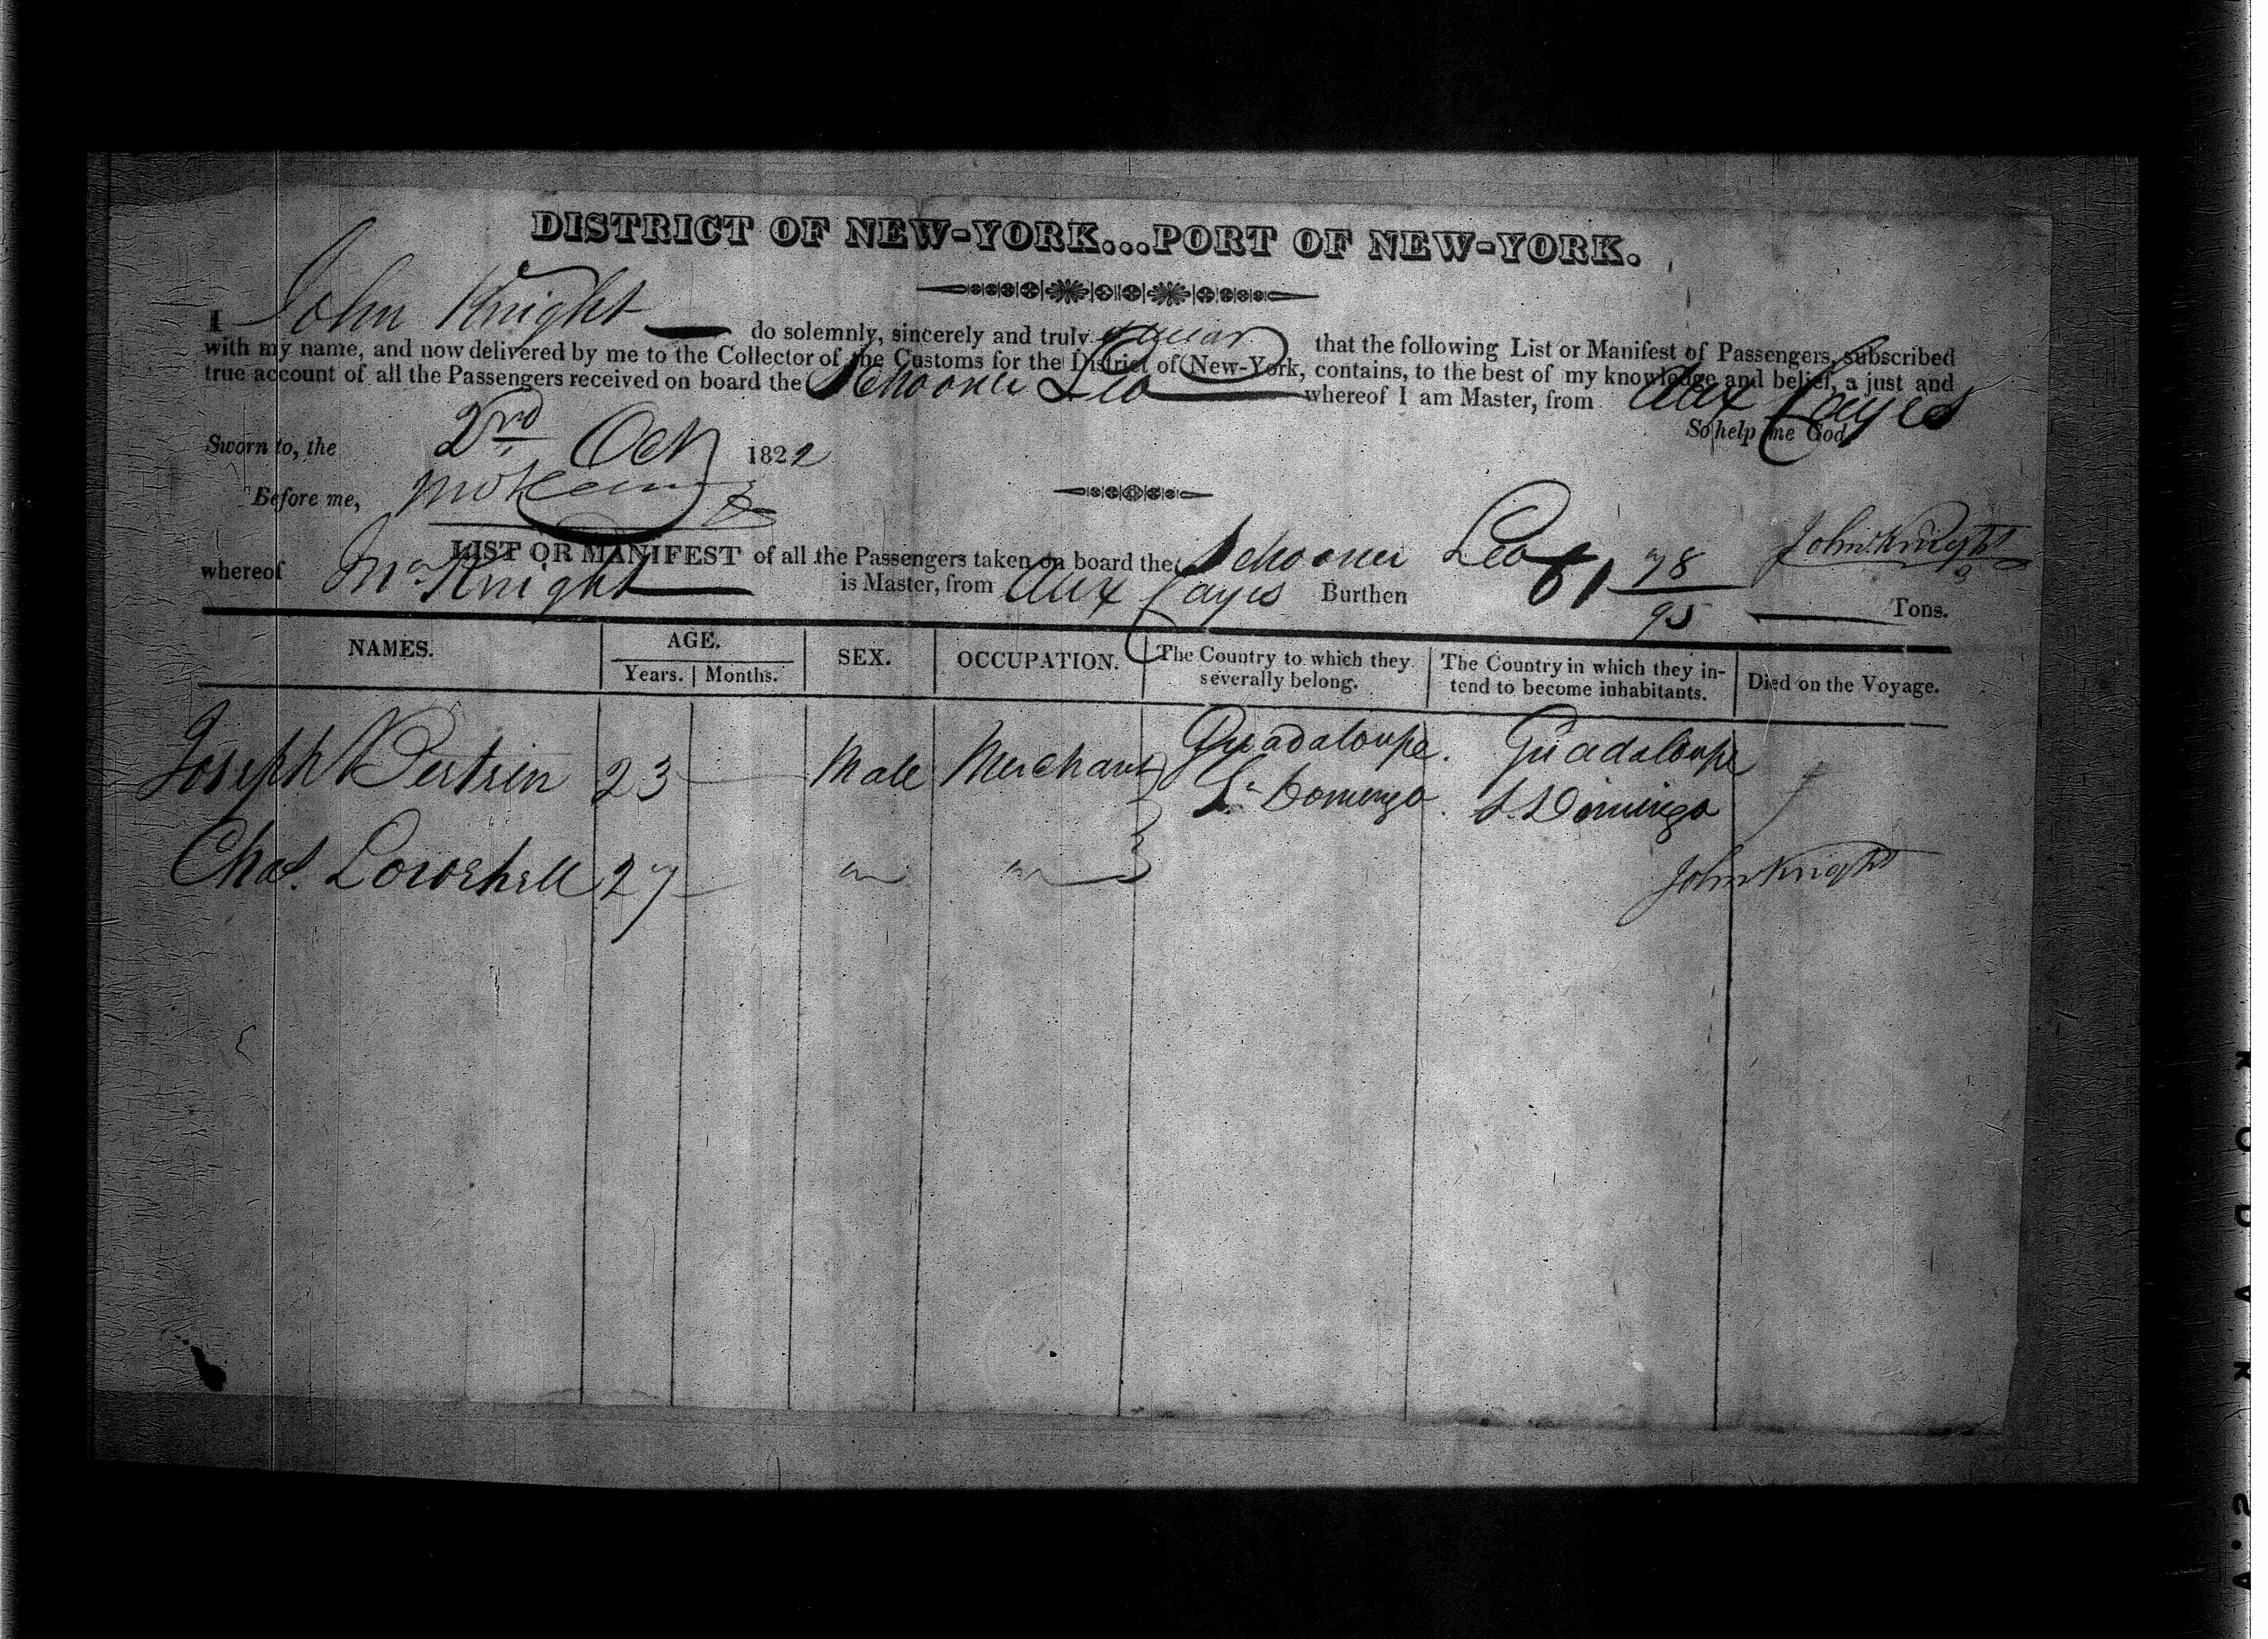 DISTRICT OF NEW-YORK...PORT OF NEW-YORK.
I John Knight do solemnly, sincerely and truly swear that the following List or Manifest of Passengers, subscribed
with my name, and now delivered by me to the Collector of the Customs for the District of New-York, contains, to the best of my knowledge and belief, a just and
true account of all the Passengers received on board the Schooner Leo whereof I am Master, from Aux Cayes
So help me God.
Sworn to, the 2nd Oct 1822
Before me,
John Knight
LIST OR MANIFEST of all the Passengers taken on board the Schooner Leo
whereof Mr Knight is Master, from Aux Cayes Burthen 81 78/95 Tons.
NAMES. AGE. SEX. OCCUPATION. The Country to which they severally belong. The Country in which they intend to become inhabitants. Died on the Voyage.
Years. Months.
Joseph 23 Male Merchant Guadaloupe. Guadaloupe
St Domingo. St Domingo
Chas. 27 " "
John Knight